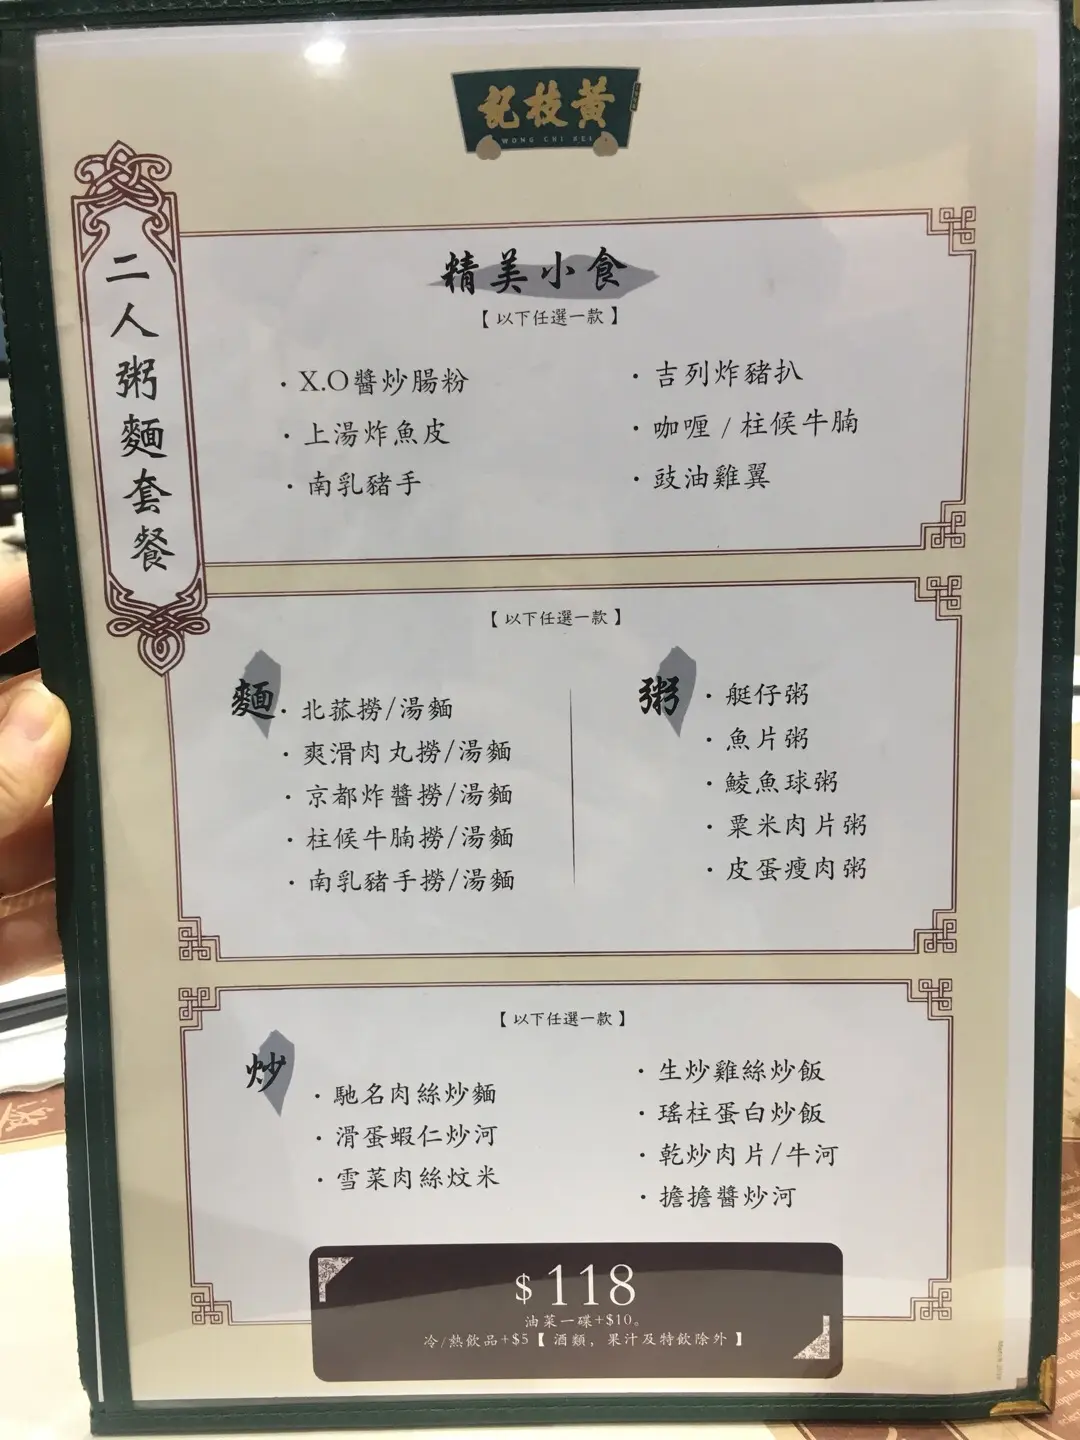 黃枝記
WONG CHI KEI
二人粥麵套餐
精美小食
【以下任選一款】
· X.O醬炒腸粉
· 上湯炸魚皮
· 南乳豬手
· 吉列炸豬扒
· 咖喱 / 柱候牛腩
· 豉油雞翼
【以下任選一款】
麵
· 北菰撈/湯麵
· 爽滑肉丸撈/湯麵
· 京都炸醬撈/湯麵
· 柱候牛腩撈/湯麵
· 南乳豬手撈/湯麵
粥
· 艇仔粥
· 魚片粥
· 鯪魚球粥
· 粟米肉片粥
· 皮蛋瘦肉粥
【以下任選一款】
炒
· 馳名肉絲炒麵
· 滑蛋蝦仁炒河
· 雪菜肉絲炆米
· 生炒雞絲炒飯
· 瑤柱蛋白炒飯
· 乾炒肉片/牛河
· 擔擔醬炒河
$118
油菜一碟+$10。
冷/熱飲品+$5【酒類，果汁及特飲除外】